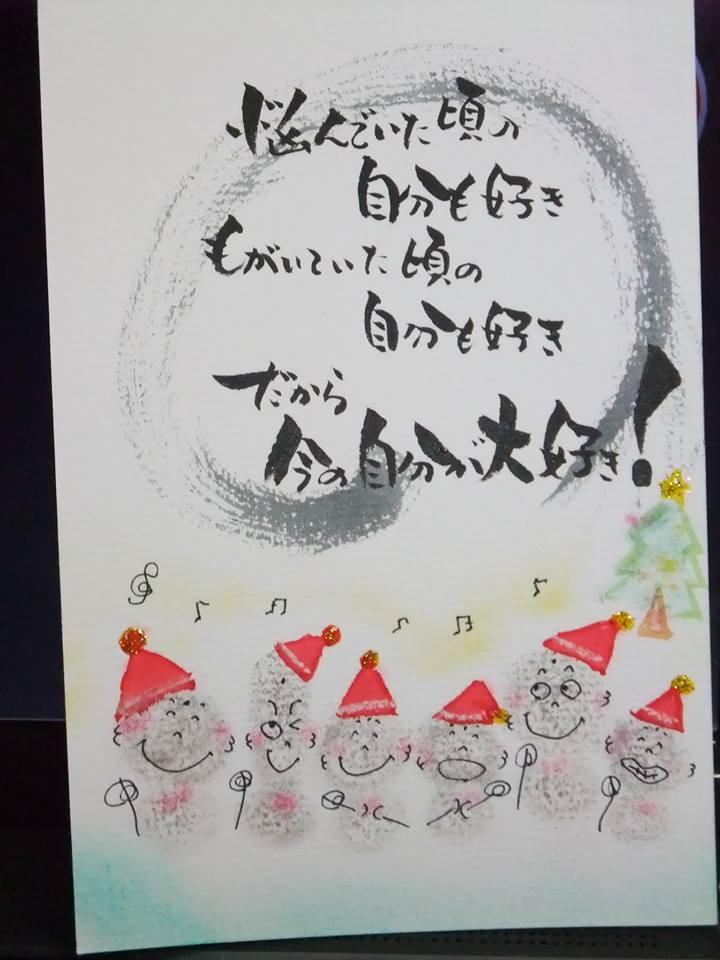 悩んでいた頃の
自分も好き
もがいていた頃の
自分も好き
だから
今の自分が大好き!